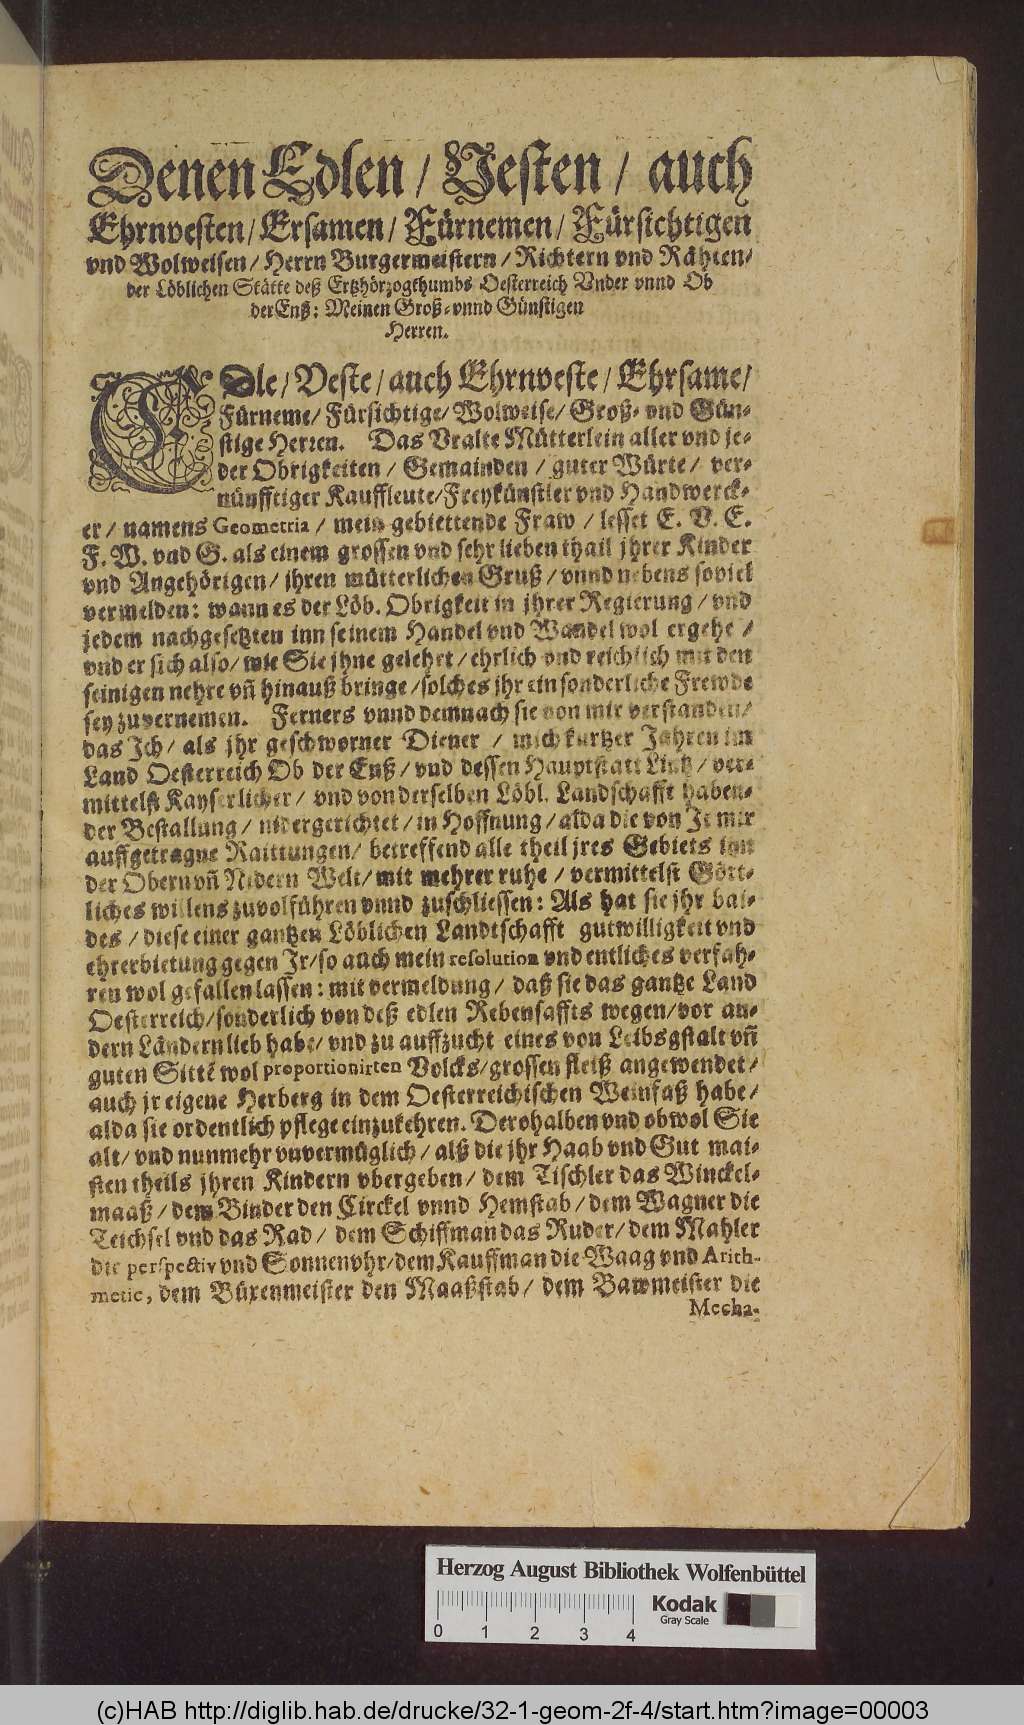 Denen Edlen / Vesten / auch
Ehrnvesten / Ersamen / Fürnemen / Fürsichtigen
vnd Wolweisen / Herrn Burgermeistern / Richtern vnd Rähten /
der Löblichen Stätte deß Ertzhörzogthumbs Oesterreich Vnder vnnd Ob
der Enß: Meinen Groß- vnnd Günstigen
Herren.
EDle / Veste / auch Ehrnveste / Ehrsame /
Fürneme / Fürsichtige / Wolweise / Groß- vnd Gün-
stige Herren. Das Vralte Mütterlein aller vnd je-
der Obrigkeiten / Gemainden / guter Würte / ver-
nünfftiger Kauffleute / Freykünstler vnd Handwerck-
er / namens Geometria / mein gebiettende Fraw / lesset E. V. E.
F. W. vnd G. als einem grossen vnd sehr lieben thail jhrer Kinder
vnd Angehörigen / ihren mütterlichen Gruß / vnnd nebens soviel
vermelden: wann es der Löb. Obrigkeit in jhrer Regierung / vnd
jedem nachgesetzten inn seinem Handel vnd Wandel wol ergehe /
vnd er sich also / wie Sie jhne gelehrt / ehrlich vnd reichlich mit den
seinigen nehre vñ hinauß bringe / solches jhr ein sonderliche Frewde
sey zuvernemen. Ferners vnnd demnach sie von mir verstanden /
das Ich / als jhr geschworner Diener / mich kurtzer Jahren im
Land Oesterreich Ob der Enß / vnd dessen Hauptstatt Lintz / ver-
mittelst Kayserlicher / vnd von derselben Löbl. Landschafft haben-
der Bestallung / nidergerichtet / in Hoffnung / alda die von Ir mir
auffgetragne Raittungen / betreffend alle theil jres Gebiets inn
der Obern vñ Nidern Welt / mit mehrer ruhe / vermittelst Gött-
liches willens zuvolführen vnnd zuschliessen: Als hat sie jhr bai-
des / diese einer gantzen Löblichen Landtschafft gutwilligkeit vnd
ehrerbietung gegen Ir / so auch mein resolution vnd entliches verfah-
ren wol gefallen lassen: mit vermeldung / daß sie das gantze Land
Oesterreich / sonderlich von deß edlen Rebensaffts wegen / vor an-
dern Ländern lieb habe / vnd zu auffzucht eines von Leibsgstalt vñ
guten Sittē wol proportionirten Volcks / grossen fleiß angewendet /
auch jr eigene Herberg in dem Oesterreichischen Weinfaß habe /
alda sie ordentlich pflege einzukehren. Derohalben vnd obwol Sie
alt / vnd nunmehr vnvermüglich / alß die jhr Haab vnd Gut mai-
sten theils jhren Kindern vbergeben / dem Tischler das Winckel-
maaß / dem Binder den Circkel vnnd Hemstab / dem Wagner die
Teichsel vnd das Rad / dem Schiffman das Ruder / dem Mahler
die perspectiv vnd Sonnenvhr / dem Kauffman die Waag vnd Arith-
metic, dem Büxenmeister den Maaßstab / dem Bawmeister die
Mecha-
Herzog August Bibliothek Wolfenbüttel
Kodak
Gray Scale
0 1 2 3 4
(c)HAB http://diglib.hab.de/drucke/32-1-geom-2f-4/start.htm?image=00003